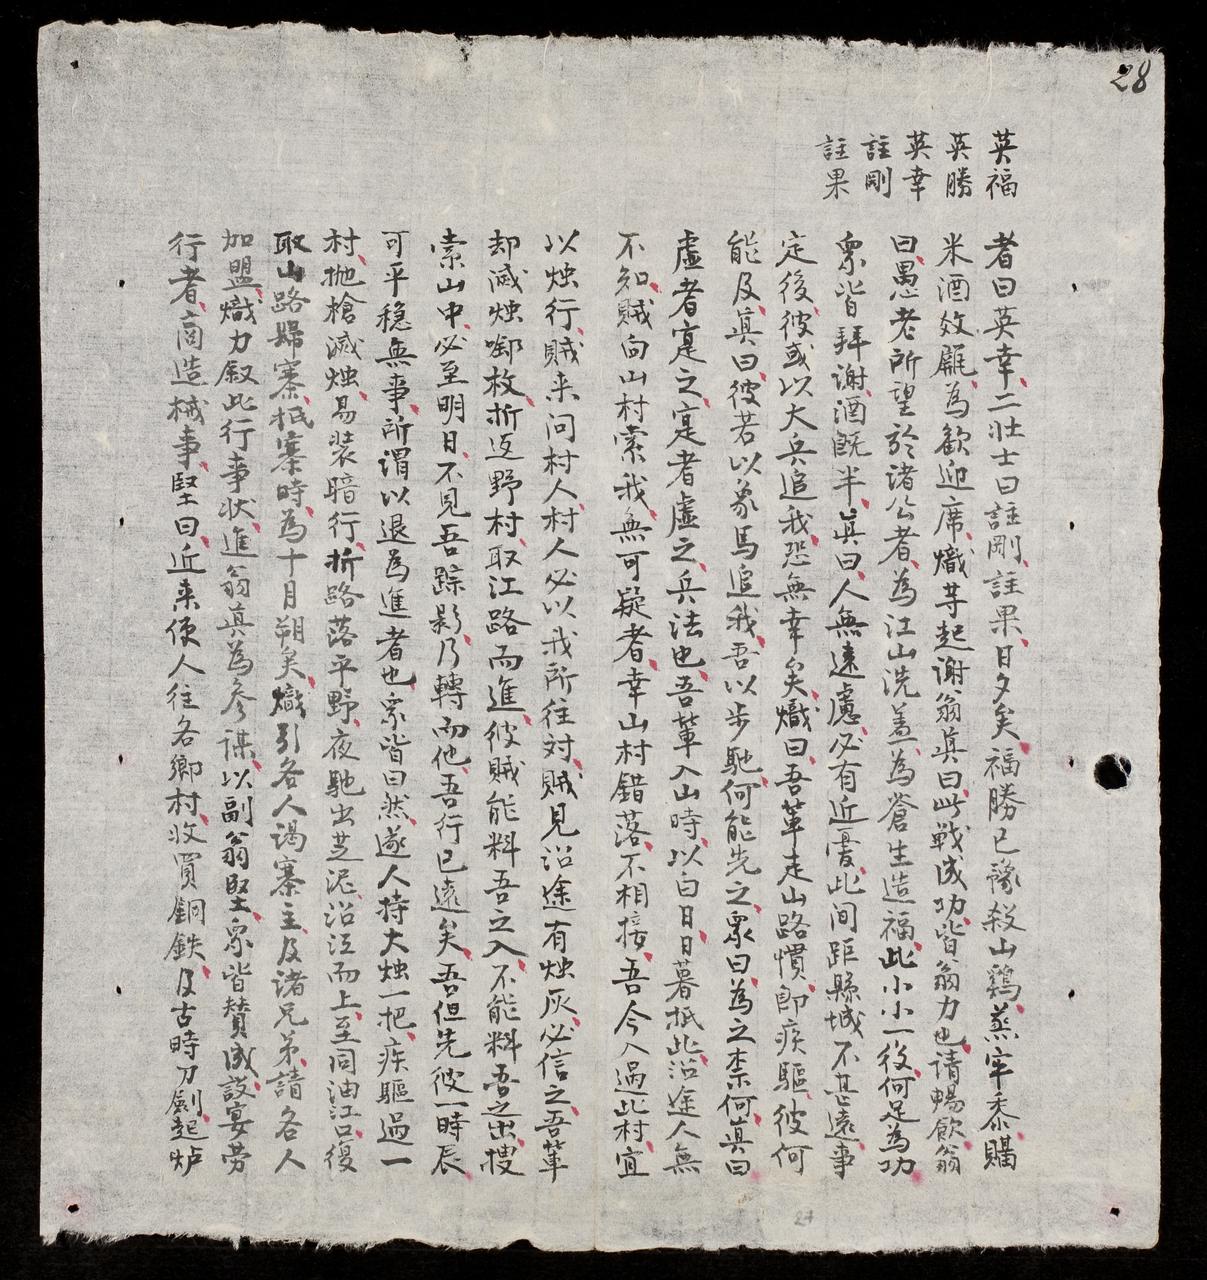 28
英福
英勝
英幸
註剛
註果
者曰英幸二壯士曰註剛註果日夕矣福勝已豫殺山鷄蒸牢黍賜
米酒效龎為歡迎席熾等起谢翁真曰此戦成功皆翁力也請暢飲翁
曰愚老所望於諸公者為江山洗羞為蒼生造福此小小一役何足為功
衆皆拜谢酒既半真曰人無遠慮必有近憂此间距縣城不甚遠事
定後彼或以大兵追我恐無幸矣熾曰吾軰走山路慣即疾驅彼何
能及真曰彼若以象馬追我吾以步馳何能先之衆曰為之柰何真曰
虛者寔之寔者虛之兵法也吾軰入山時以白日日暮抵此沿途人無
不知賊向山村索我無可疑者幸山村錯落不相接吾今人過此村宜
以烛行賊来问村人村人必以我所往対賊見沿途有烛灰必信之吾軰
却滅烛啣枚折返野村取江路而進彼賊能料吾之入不能料吾之出搜
索山中必至明日不見吾踪影乃轉而他吾行已遠矣吾但先彼一時辰
可平穏無事所谓以退為進者也衆皆曰然遂人持大烛一把疾驅過一
村抛槍滅烛易装暗行折路落平野夜馳出芝泥沿江而上至同油江口復
取山路歸寨抵寨時為十月朔矣熾引各人谒寨主及諸兄弟請各人
加盟熾力叙此行事状進翁真為参谋以副翁堅衆皆賛成設宴劳
行者商造械事堅曰近来使人往各鄉村收買銅鉄及古時刀劍起炉
24